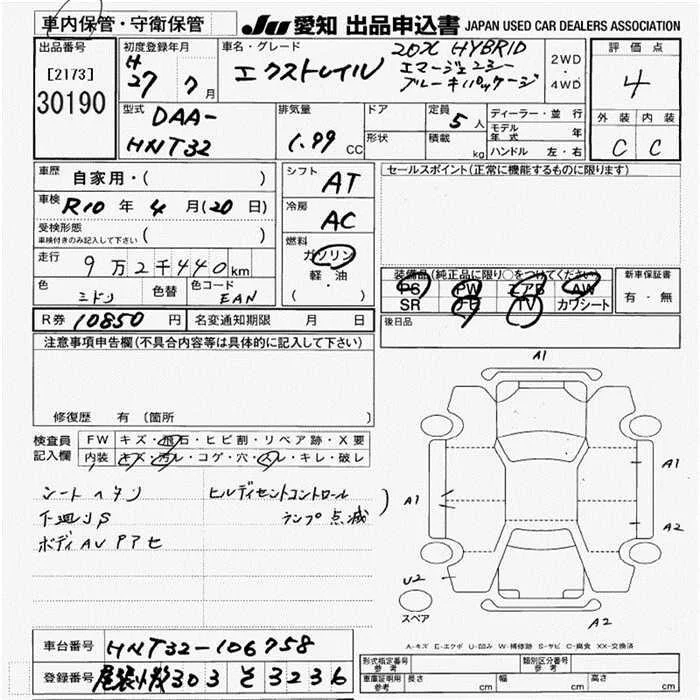 車内保管・守衛保管
JU 愛知 出品申込書 JAPAN USED CAR DEALERS ASSOCIATION
出品番号
[2173]
30190
初度登録年月
H27 7月
車名・グレード
エクストレイル
20X HYBRID
エマージェンシー
ブレーキパッケージ
2WD
・
4WD
評価点
4
外装 内装
C C
型式
DAA-
HNT32
排気量
1.99 CC
ドア
形状
定員
5人
積載
kg
ディーラー・並行
モデル年式 年
ハンドル 左・右
車歴
自家用・( )
車検
R10年 4月(20日)
受検形態
車検付きのみ記入して下さい ( )
走行
9万2千440km
色
ミドリ
色替
色コード
EAN
シフト
AT
冷房
AC
燃料
ガソリン
軽・油
( )
セールスポイント(正常に機能するものに限ります)
装備品(純正品に限り○をつけてください)
PS PW エアB AW
SR TV カワシート
新車保証書
有・無
後日品
R券 10850円
名変通知期限 月 日
注意事項申告欄(不具合内容等は具体的に記入して下さい)
修復歴 有 〔箇所
検査員
記入欄
FW キズ・飛石・ヒビ割・リペア跡・X要
内装 キズ・汚レ・コゲ・穴・スレ・キレ・破レ
シートヘタリ
下廻りS
ボディAUPアセ
ヒルディセントコントロール
ランプ点滅
A1
A1
A1
A2
U2
A2
スペア
A-キズ E-エクボ U-凹み W-補修跡 S-サビ C-腐食 XX-交換済
車台番号 HNT32-106758
登録番号 尾張小牧303 そ 3236
形式指定番号
参考
類別区分番号
参考
車庫証明用
参考
長さ cm
幅 cm
高さ cm